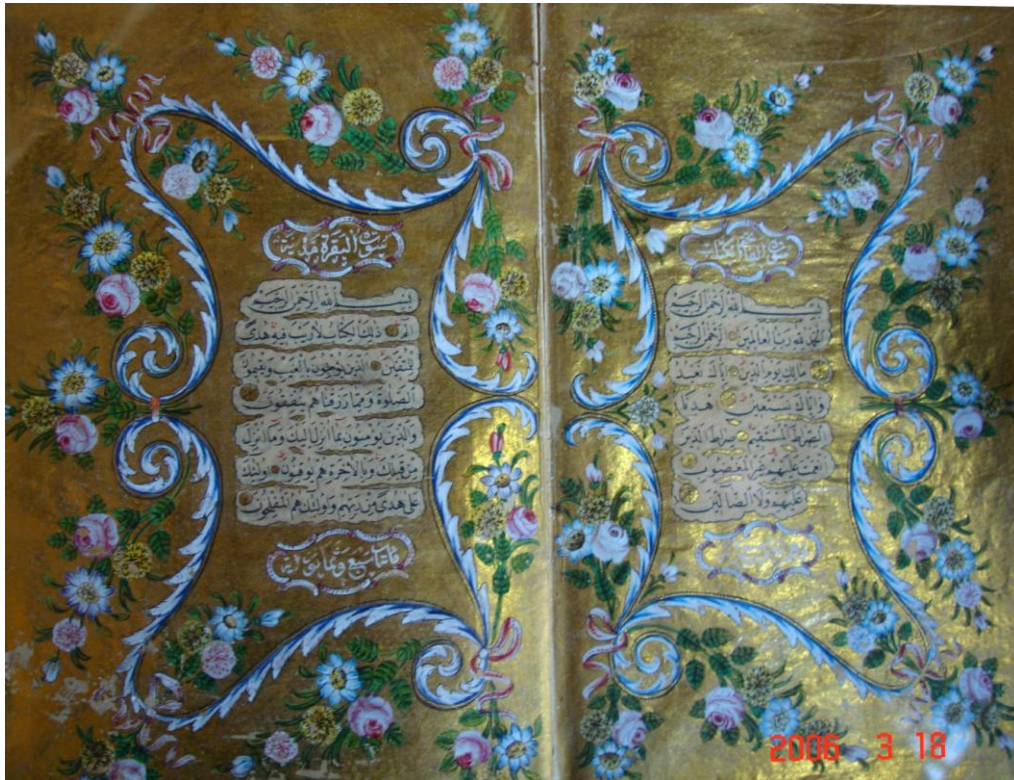 سورة فاتحة الكتاب
بسم الله الرحمن الرحيم
الحمد لله رب العالمين الرحمن الرحيم
مالك يوم الدين اياك نعبد
واياك نستعين اهدنا
الصراط المستقيم صراط الذين
انعمت عليهم غير المغضوب
عليهم ولا الضالين
سورة البقرة مدنية
بسم الله الرحمن الرحيم
الم ذلك الكتاب لا ريب فيه هدى
للمتقين الذين يؤمنون بالغيب ويقيمون
الصلوة ومما رزقناهم ينفقون
والذين يؤمنون بما انزل اليك وما انزل
من قبلك وبالاخرة هم يوقنون اولئك
على هدى من ربهم واولئك هم المفلحون
مأتان سبع وثمانون اية
2006 3 18